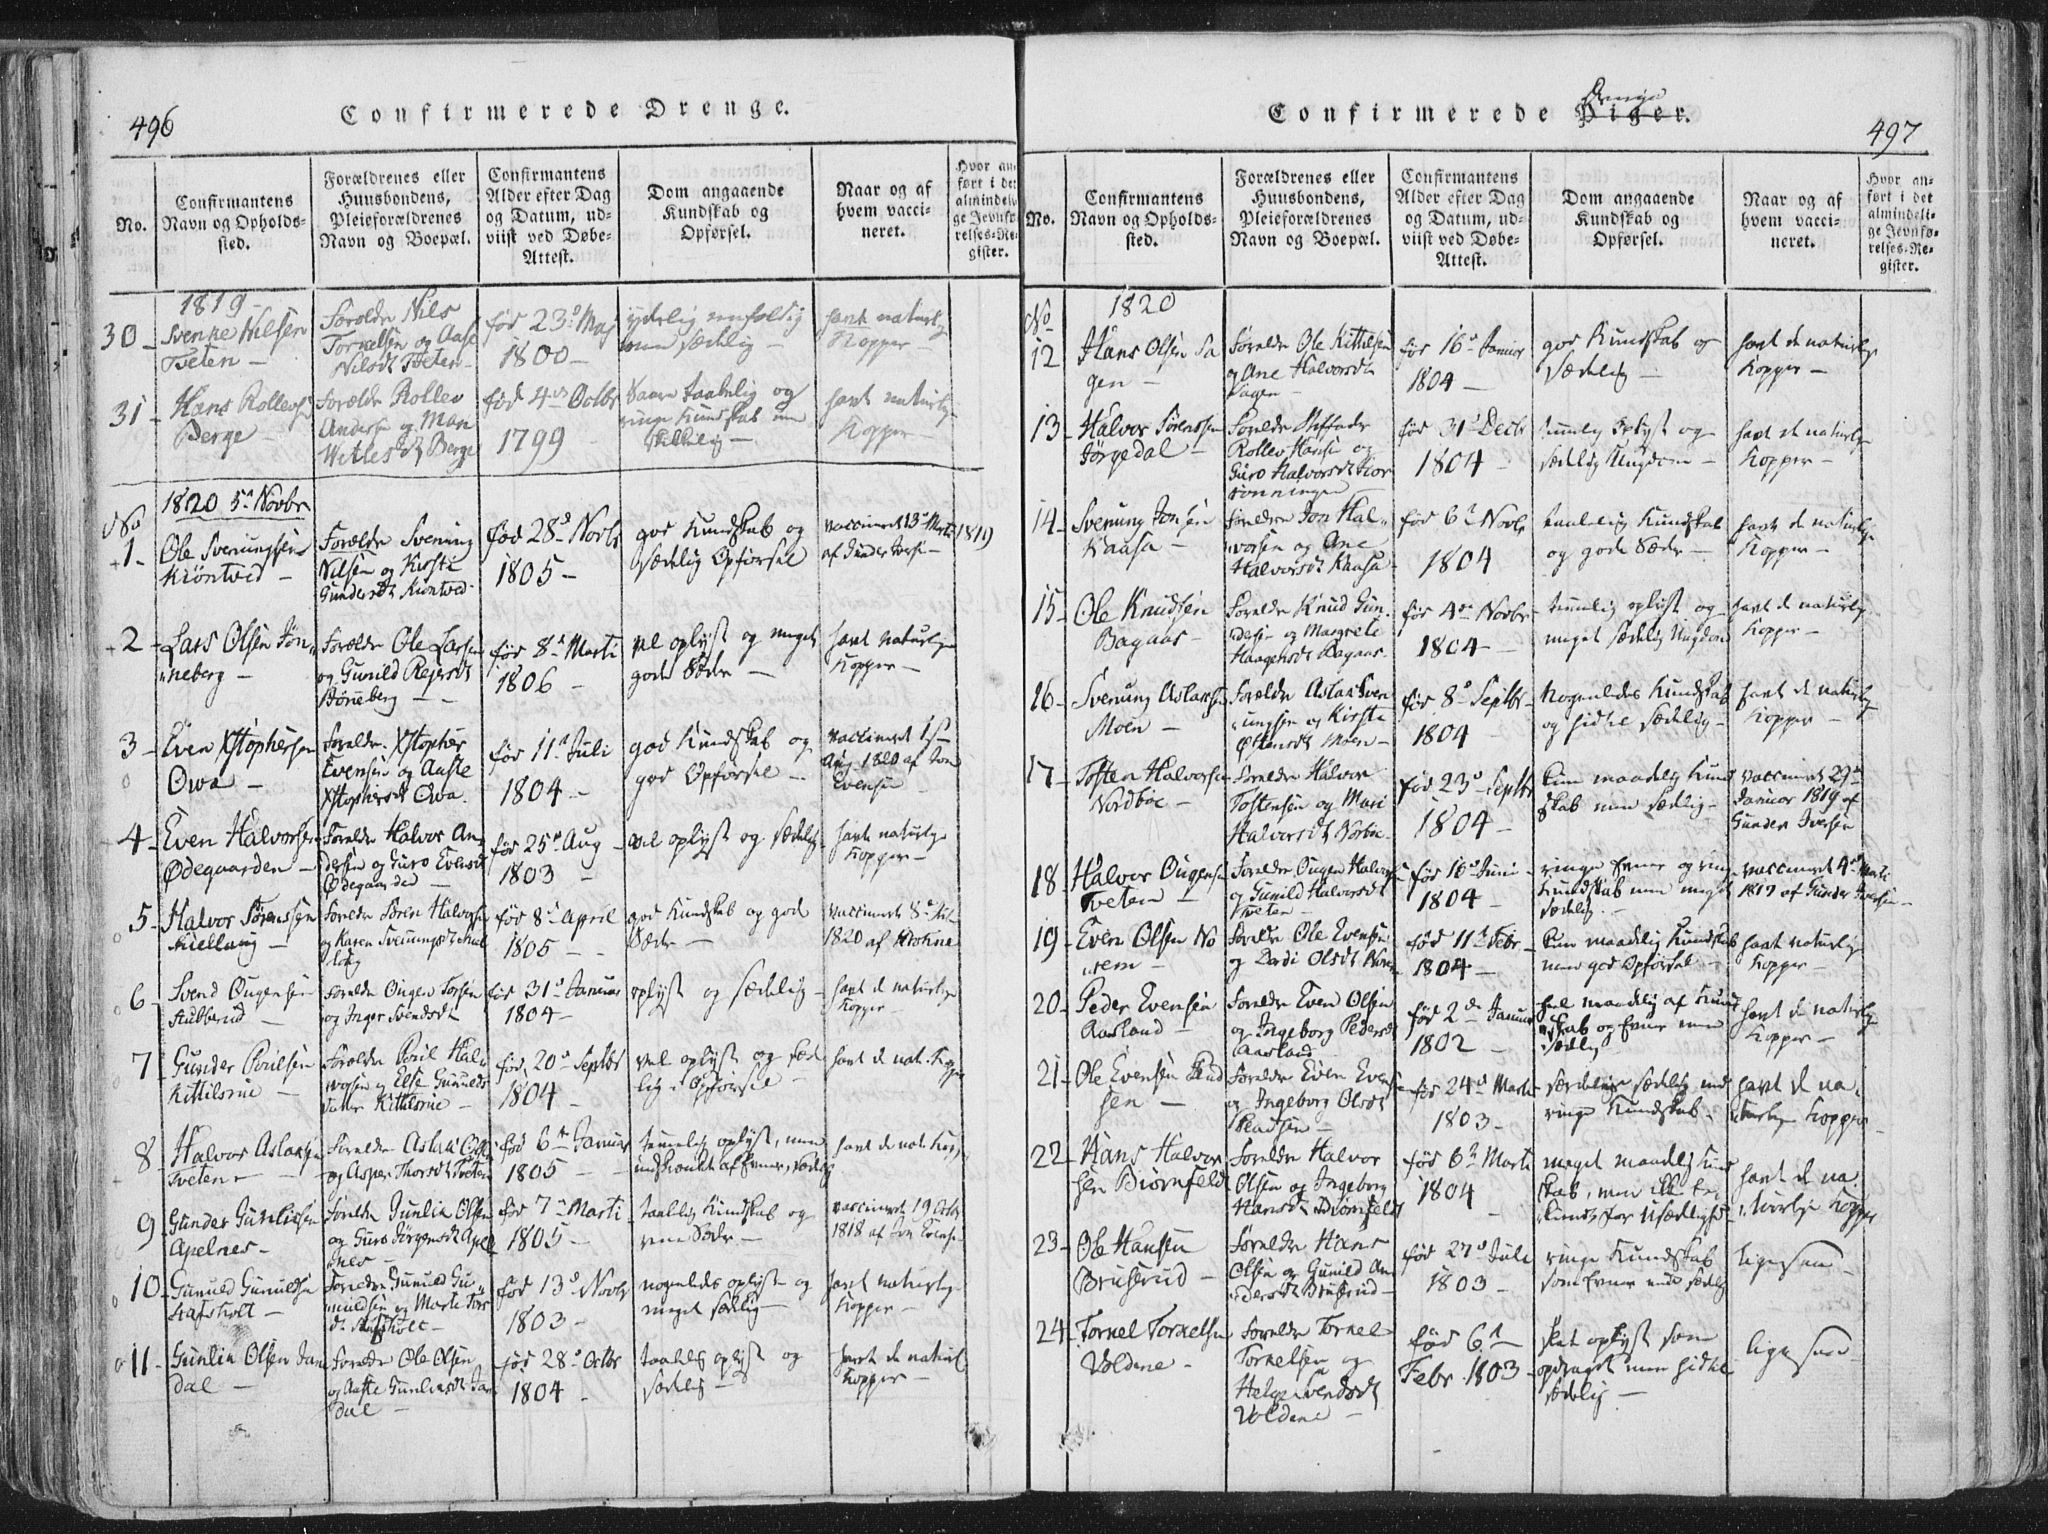 496
Confirmerede Drenge.
No.
Confirmantens
Navn og Opholds-
sted.
Forældrenes eller
Huusbondens,
Pleieforældrenes
Navn og Boepæl.
Confirmantens
Alder efter Dag
og Datum, ud-
viist ved Døbe-
Attest.
Dom angaaende
Kundskab og
Opførsel.
Naar og af
hvem vacci-
neret.
Hvor an-
ført i det
almindeli-
ge Jevnfø-
relses-Re-
gister.
1819
30
Svenke Nilsen
Tveten
Foreldre Nils
Torkelsen og Aase
Nilsdt Tveten
fød 23d Maj
1800
havt naturlige
Kopper
31
Hans Rollevsen
Berge
Forældre Rollev
Andersen og Mari
Wetlesdt Berge
fød 4de Octbr
1799
havt naturlige
Kopper
No
1820 5te Novbr
1
Ole Sverungsen
Kiøntvid
Forældre Svening
Nilsen og Kirsti
Gundersdt Kiøntved
fød 28d Novbr
1805
god Kundskab og
sædelig Opførsel
vaccineret 13d Marti 1819
af Gunder Iversen
2
Lars Olsen Bøn-
neberg
Forældre Ole Larsen
og Gunild Rejersdt
Bønneberg
fød 8d Marti
1806
vel oplyst og meget
gode Sæder
havt naturlige
Kopper
3
Even Xstophersen
Owa
Foreldre Xstopher
Evensen og Aaste
Xstophersdt Owa
fød 11d Juli
1804
god Kundskab og
god Opførsel
vaccineret 1st
Aug 1820 af Jon
Evensen
4
Even Halvorsen
Ødegaarden
Foreldre Halvor An-
dersen og Guro Evensdt
Ødegaarden
fød 25d Aug
1803
vel oplyst og sædelig
havt naturlige
Kopper
5
Halvor Sørenssen
Foreldre Søren Halvorsen
og Karen Sveinungsdt
fød 8d April
1805
god Kundskab og gode
Sæder
vaccineret 8d
1820 af
6
Svend Ougensen
Stubberud
Foreldre Ougen
og Inger Svendsdt
fød 31d Januar
1804
oplyst og sædelig
havt de naturlige
Kopper
7
Gunder Poulsen
Kittilsrue
Foreldre Poul Hal-
vorsen og Else Gunulds
datter Kittilsrue
fød 20d Septbr
1804
vel oplyst og sæd-
lig i Opførsel
havt de nat. Kopper
8
Halvor Aslaksen
Tveten
Foreldre Aslak Olsen
og Asper Thorsdt Tveten
fød 6te Januar
1805
temmelig oplyst, men
indskrænkt af Evner, sædelig
havt de nat. Kopper
9
Gunder Gunliksen
Apelnes
Foreldre Gunlik Olsen
og Guro Jørgensdt Apel-
nes
fød 7de Marti
1805
taalelig Kundskab og
rene Sæder
vaccineret 19 Octbr
1818 af Jon Evensen
10
Gunuld Gunuldsen
Hafsholt
Foreldre Gunuld Gu-
nuldsen og Marte
fød 13d Novbr
1803
nogenledes oplyst og
meget sædelig
havt naturlige
Kopper
11
Gunlik Olsen
dal
Foreldre Ole Olsen
og Aaste Gunliksdt
dal
fød 28d Octbr
1804
taalelig oplyst og
sædelig
havt de naturl.
Kopper
Confirmerede Piger.
Drenge
497
No.
Confirmantens
Navn og Opholds-
sted.
Forældrenes eller
Huusbondens,
Pleieforældrenes
Navn og Boepæl.
Confirmantens
Alder efter Dag
og Datum, ud-
viist ved Døbe-
Attest.
Dom angaaende
Kundskab og
Opførsel.
Naar og af
hvem vacci-
neret.
Hvor an-
ført i det
almindeli-
ge Jevnfø-
relses-Re-
gister.
No
1820
12
Hans Olsen Sa
gen
Foreldre Ole Kittilsen
og Ane Halvorsdt
Sagen
fød 16d Januar
1804
god Kundskab og
Sædelig
havt de naturlige
Kopper
13
Halvor Sørenssen
Jørgedal
Rollev Hansen og
Guro Halvorsdt
fød 31d Decbr
1804
temmelig oplyst og
sædelig Ungdom
havt de naturlige
Kopper
14
Sverung Jonsen
Kaasa
Foreldre Jon Hal-
vorsen og Ane
Halvorsdt Kaasa
fød 6te Novbr
1804
taalelig Kundskab
og gode Sæder
havt de naturlige
Kopper
15
Ole Knudsen
Bagaas
Foreldre Knud Gun-
dersen og Margrete
Haagensdt Bagaas
fød 4de Novbr
1804
temmelig oplyst og
meget sædelig Ungdom
havt de naturlige
Kopper
16
Sverung Aslaksen
Moen
Forældre Aslak Sver-
ungsen og Kirsti
Ottersdt Moen
fød 8d Septbr
1804
Nogenledes Kundskab
og hidtil sædelig
havt de naturlige
Kopper
17
Tosten Halvorsen
Nordbøe
Foreldre Halvor
Tostensen og Mari
Halvorsdt Norbøe
fød 23d Septbr
1804
kun maadelig Kund
skab men sædelig
vaccineret 29de
Januar 1819 af
Gunder Iversen
18
Halvor Ougensen
Tveten
Foreldre Ougen Halvorsen
og Gunild Halvorsdt
Tveten
fød 16d Juni
1804
ringe Evner og ringe
Kundskab men meget
sædelig
vaccineret 4de Marti
1817 af Gunder Iversen
19
Even Olsen No
rem
Foreldre Ole Evensen
og Dordi Olsdt Norem
fød 11te Febr
1804
kun maadelig Kundskab
men god Opførsel
havt naturlige
Kopper
20
Peder Evensen
Aasland
Foreldre Even Olsen
og Ingeborg Pedersdt
Aasland
fød 2de Januar
1802
heel maadelig af Kund-
skab og Evner men
sædelig
havt de naturlige
Kopper
21
Ole Evensen
sen
Foreldre Even Even-
sen og Ingeborg Olsdt
fød 24d Marti
1803
særdeles sædelig med
ringe Kundskab
havt de na-
turlige Kopper
22
Hans Halvor
sen Biørnfeld
Foreldre Halvor
Olsen og Ingeborg
Hansdt Biørnfeldt
fød 6te Marti
1804
meget maadelig Kund
skab, men ikke be-
kiendt for Usædelighed
havt de na-
turlige Kopper
23
Ole Hansen
Bruserud
Foreldre Hans
Olsen og Gunild An-
dersdt Bruserud
fød 27d Juli
1803
ringe Kundskab
som Evner men sædelig
ligesaa
24
Torkel Torkelsen
Voldene
Foreldre Torkel
Torkelsen og
Helge Svendsdt
Voldene
fød 6te
Febr 1803
slet oplyst som
opdraget men hidtil
sædelig
ligesaa